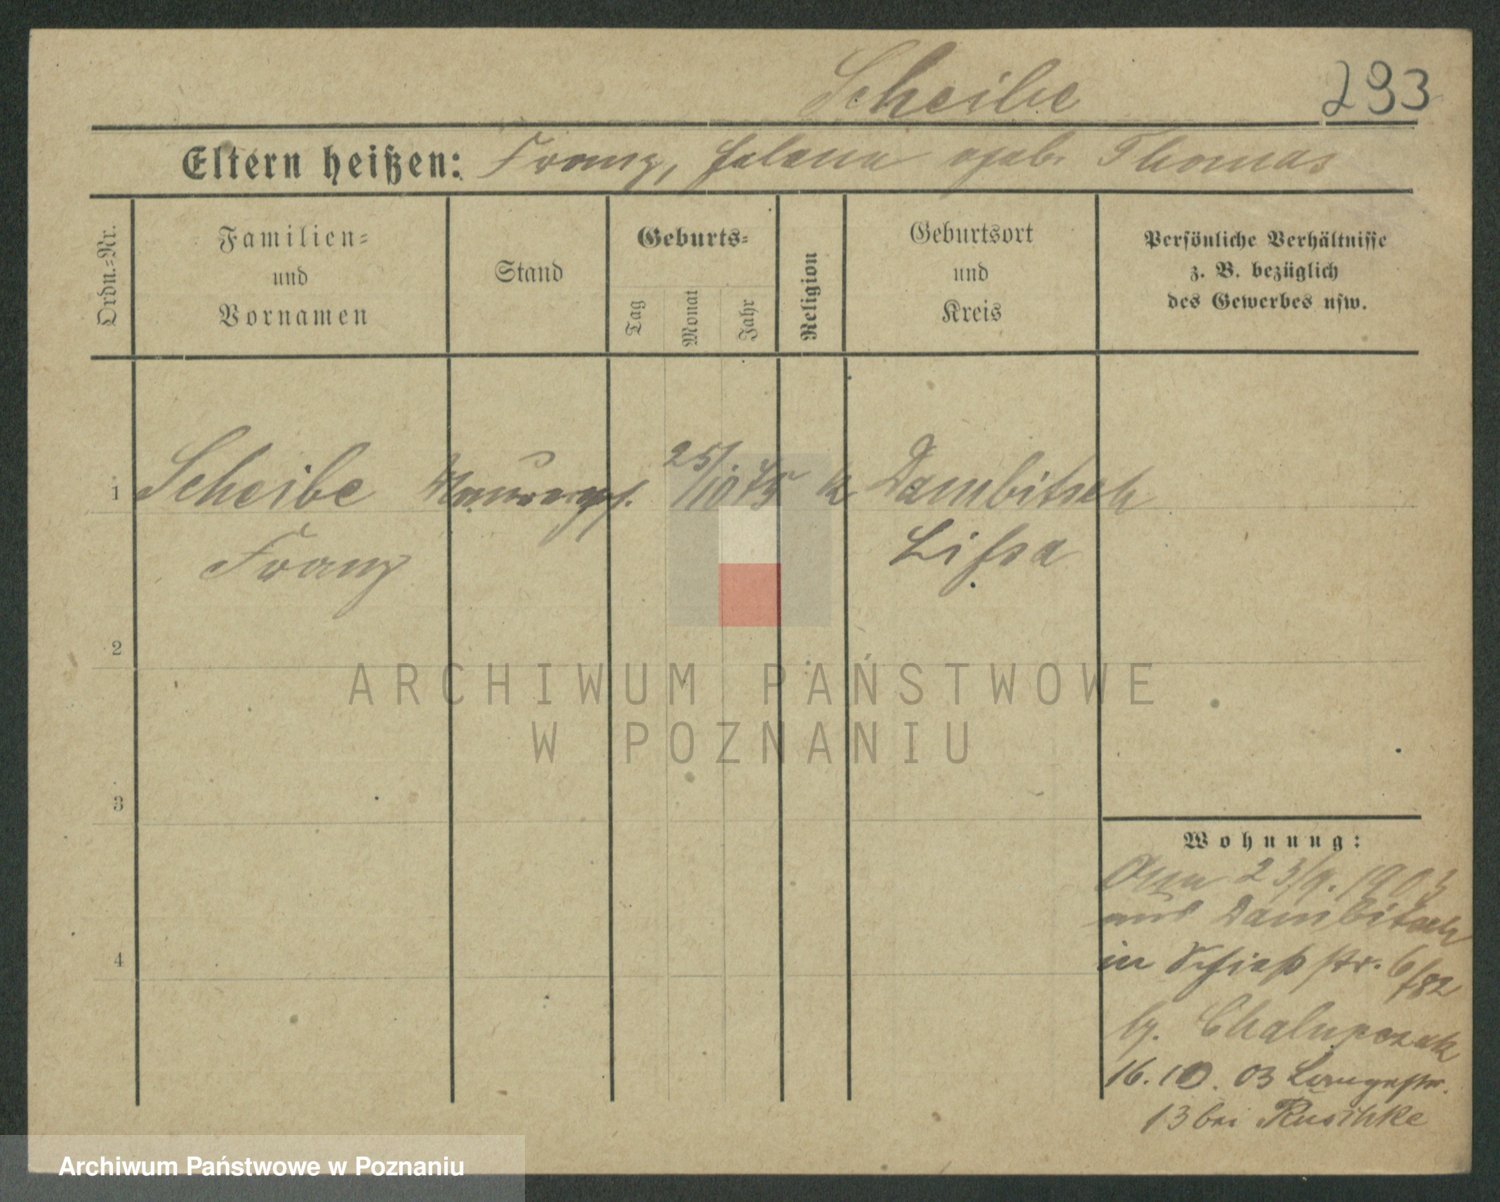 Scheibe
293
Eltern heißen: Franz, Helena geb. Thomas
Ordn.-Nr.
Familien-
und
Vornamen
Stand
Geburts-
Tag
Monat
Jahr
Religion
Geburtsort
und
Kreis
Persönliche Verhältnisse
z. B. bezüglich
des Gewerbes usw.
1 Scheibe Maurergs. 25/10 75 k Dambitsch
Franz Lissa
2
3
4
ARCHIWUM PAŃSTWOWE
W POZNANIU
Wohnung:
23/9. 1903
aus Dambitsch
in Schießstr. 6/782
by. Chalupczak
16. 10. 03 Langestr.
13 bei Ruschke
Archiwum Państwowe w Poznaniu